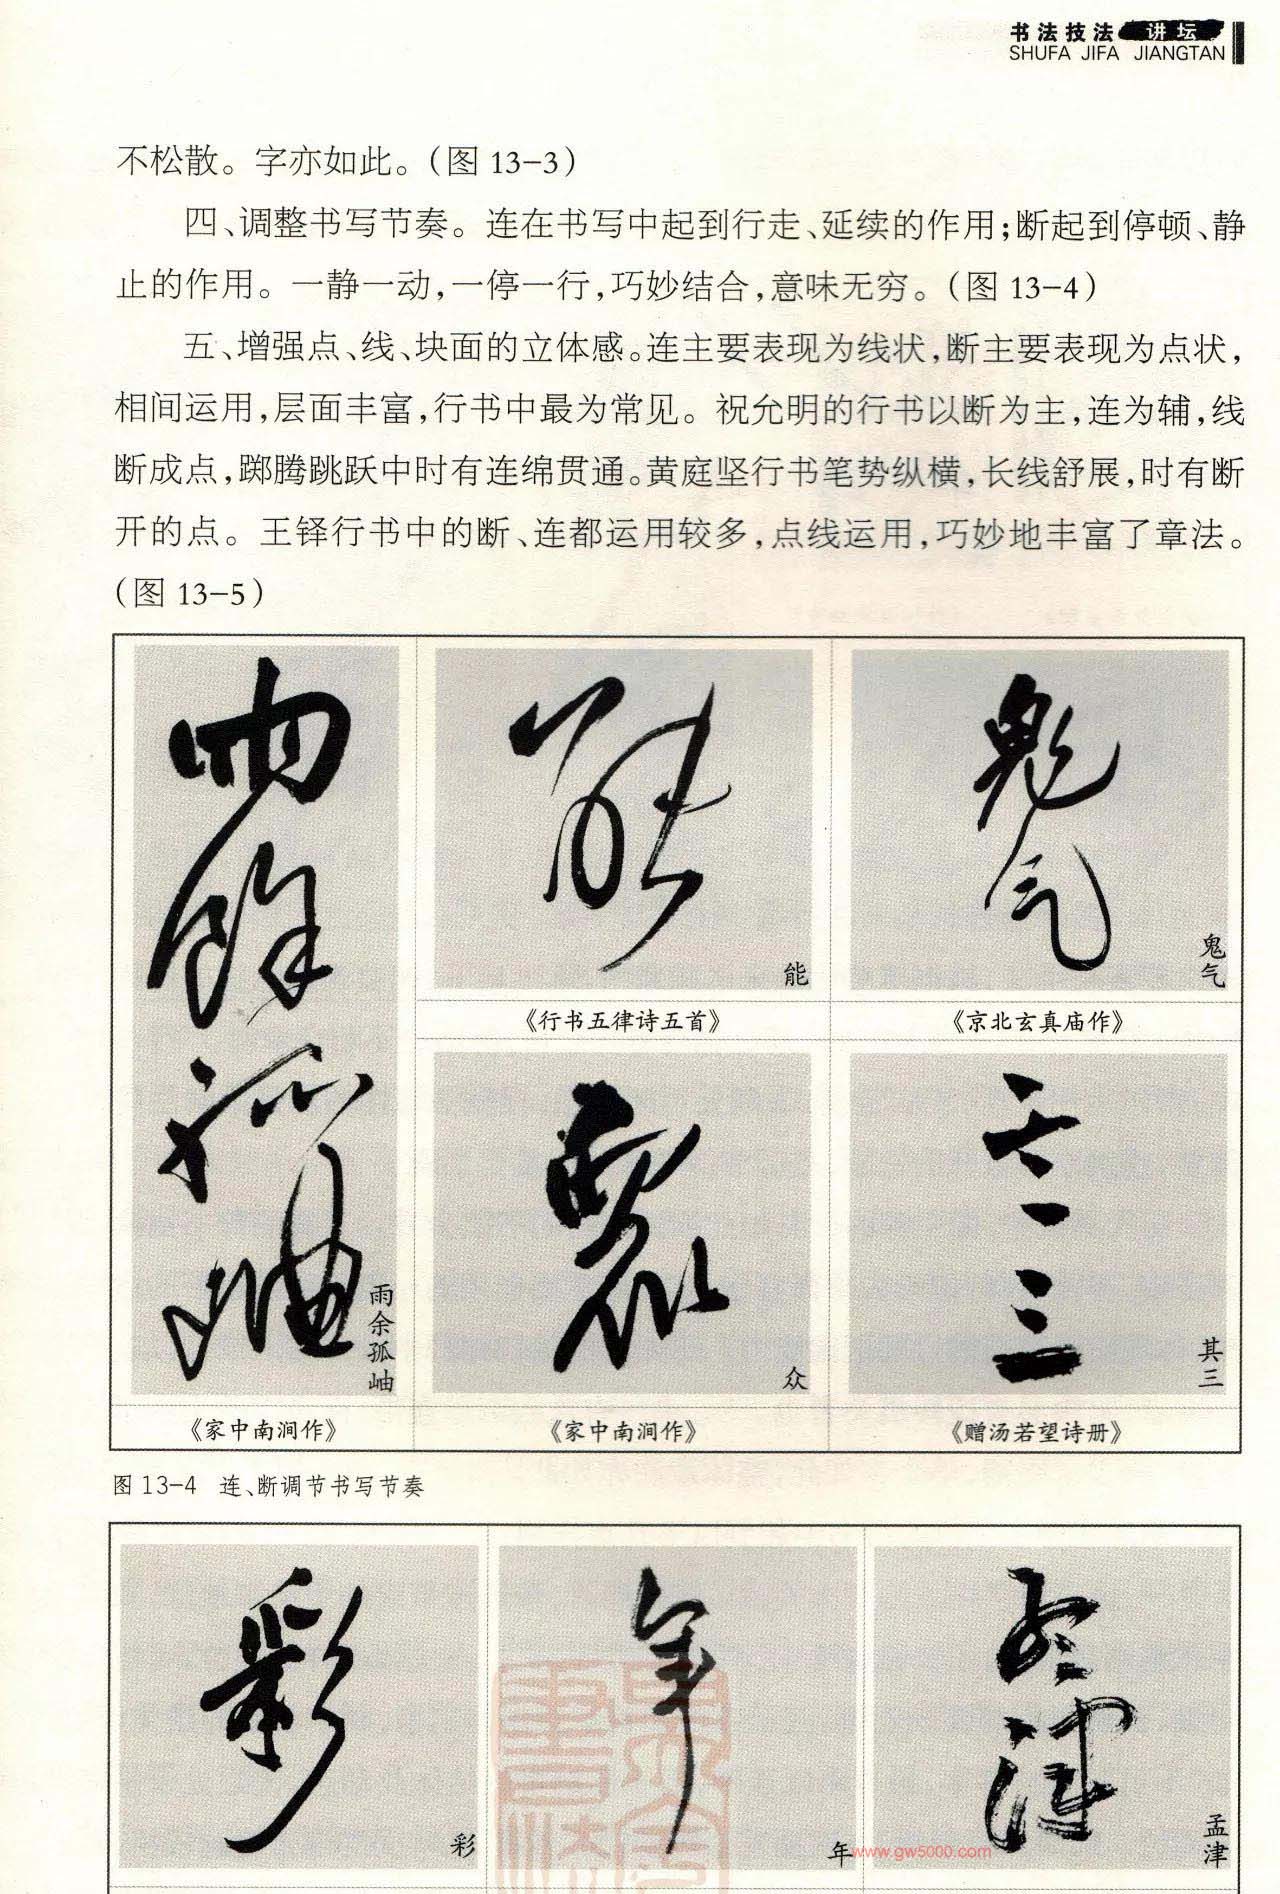 书法技法 讲坛
SHUFA JIFA JIANGTAN
不松散。字亦如此。(图 13-3)
四、调整书写节奏。连在书写中起到行走、延续的作用;断起到停顿、静
止的作用。一静一动,一停一行,巧妙结合,意味无穷。(图 13-4)
五、增强点、线、块面的立体感。连主要表现为线状,断主要表现为点状,
相间运用,层面丰富,行书中最为常见。祝允明的行书以断为主,连为辅,线
断成点,踯腾跳跃中时有连绵贯通。黄庭坚行书笔势纵横,长线舒展,时有断
开的点。王铎行书中的断、连都运用较多,点线运用,巧妙地丰富了章法。
(图 13-5)
雨余孤岫
雨余孤岫
《家中南涧作》
能
能
《行书五律诗五首》
鬼气
鬼气
《京北玄真庙作》
众
《家中南涧作》
其三
《赠汤若望诗册》
图 13-4 连、断调节书写节奏
彩
彩
年
年
孟津
孟津
www.gw5000.com